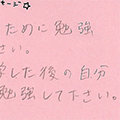 セージ☆
ために勉強
さい。
した後の自分
勉強して下さい。